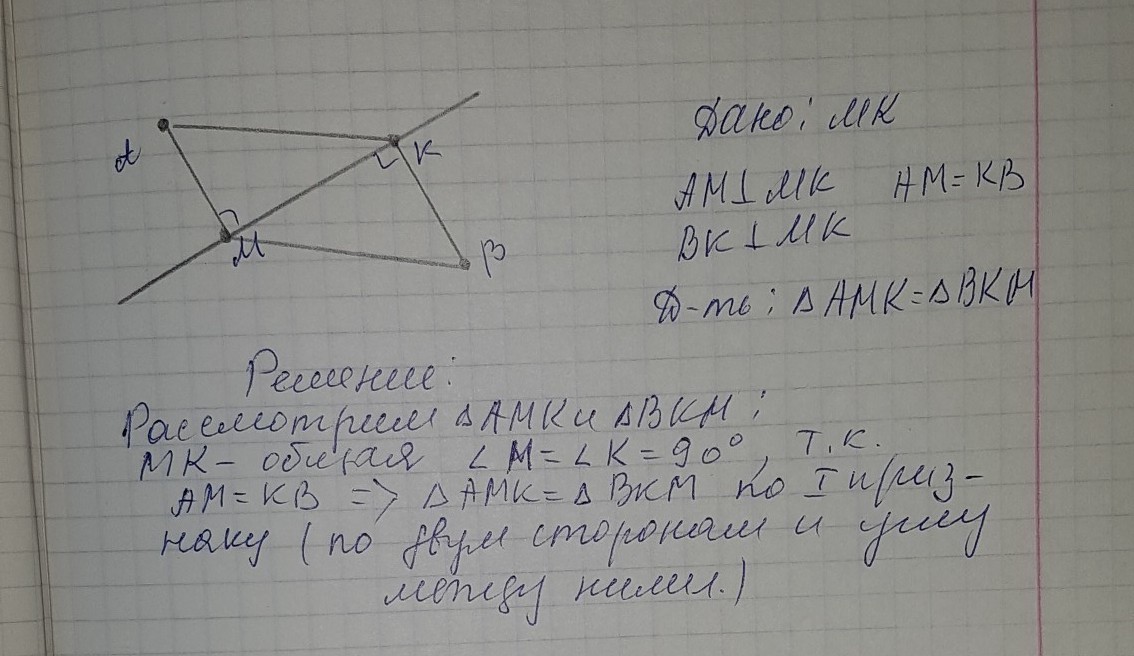 A
K
M
B
Дано: MK
AM⊥MK AM=KB
BK⊥MK
Д-ть: ΔAMK=ΔBKM
Решение:
Рассмотрим ΔAMK и ΔBKM:
MK- общая ∠M=∠K=90°, т.к.
AM=KB => ΔAMK=ΔBKM по I приз-
наку (по двум сторонам и углу
между ними.)